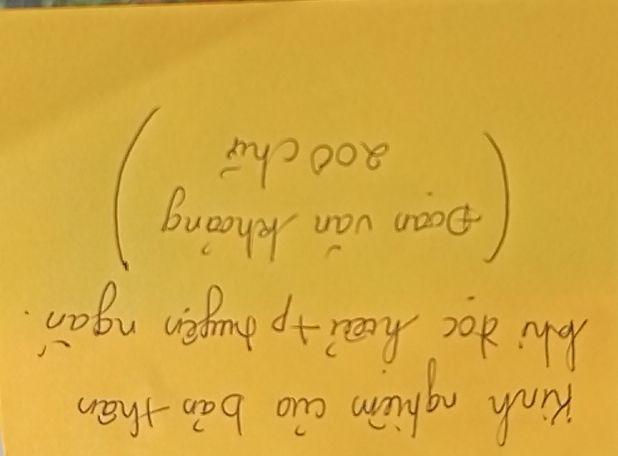 Kinh nghiệm của bản thân
khi đọc hiểu tp truyện ngắn.
(Đoạn văn khoảng
200 chữ)